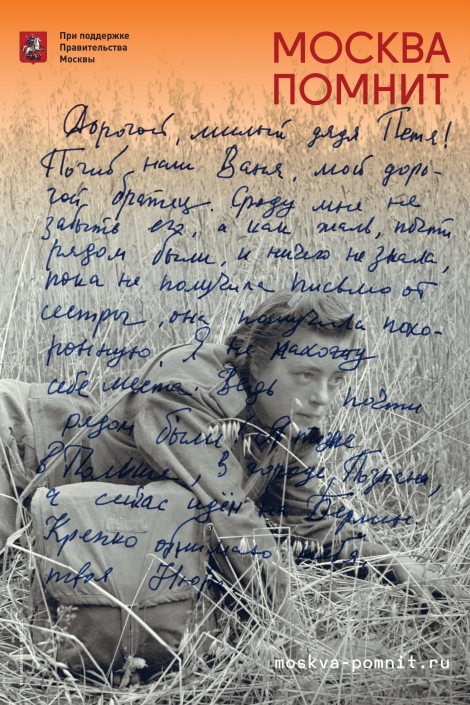 При поддержке
Правительства
Москвы
МОСКВА
ПОМНИТ
Дорогой, милый дядя Петя!
Погиб наш Ваня, мой доро-
гой братец. Сроду мне не
забыть его, а как жаль, почти
рядом были, и ничего не знала,
пока не получила письмо от
сестры, она получила похо-
ронную. Я не нахожу
себе места. Ведь почти
рядом были! Я тоже
в Польше, в городе Познани,
а сейчас идём на Берлин
Крепко обнимаю тебя,
твоя Нюра
moskva-pomnit.ru